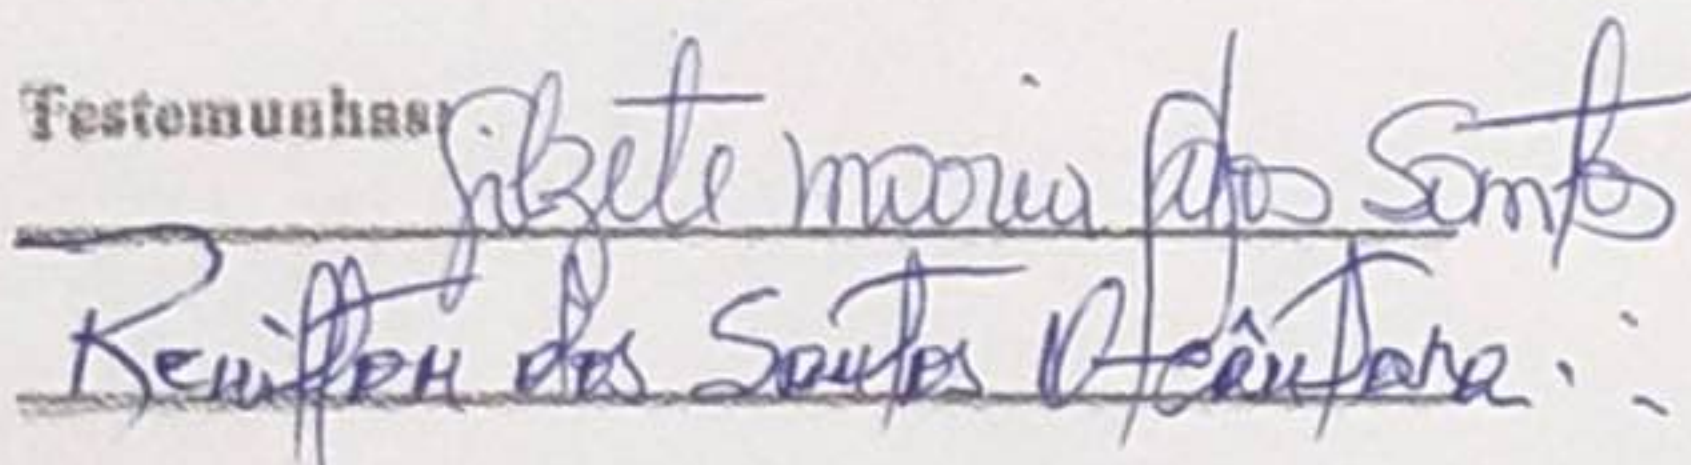 Testemunhas: Gilzete maria dos Santos
Renilton dos Santos Alcântara.